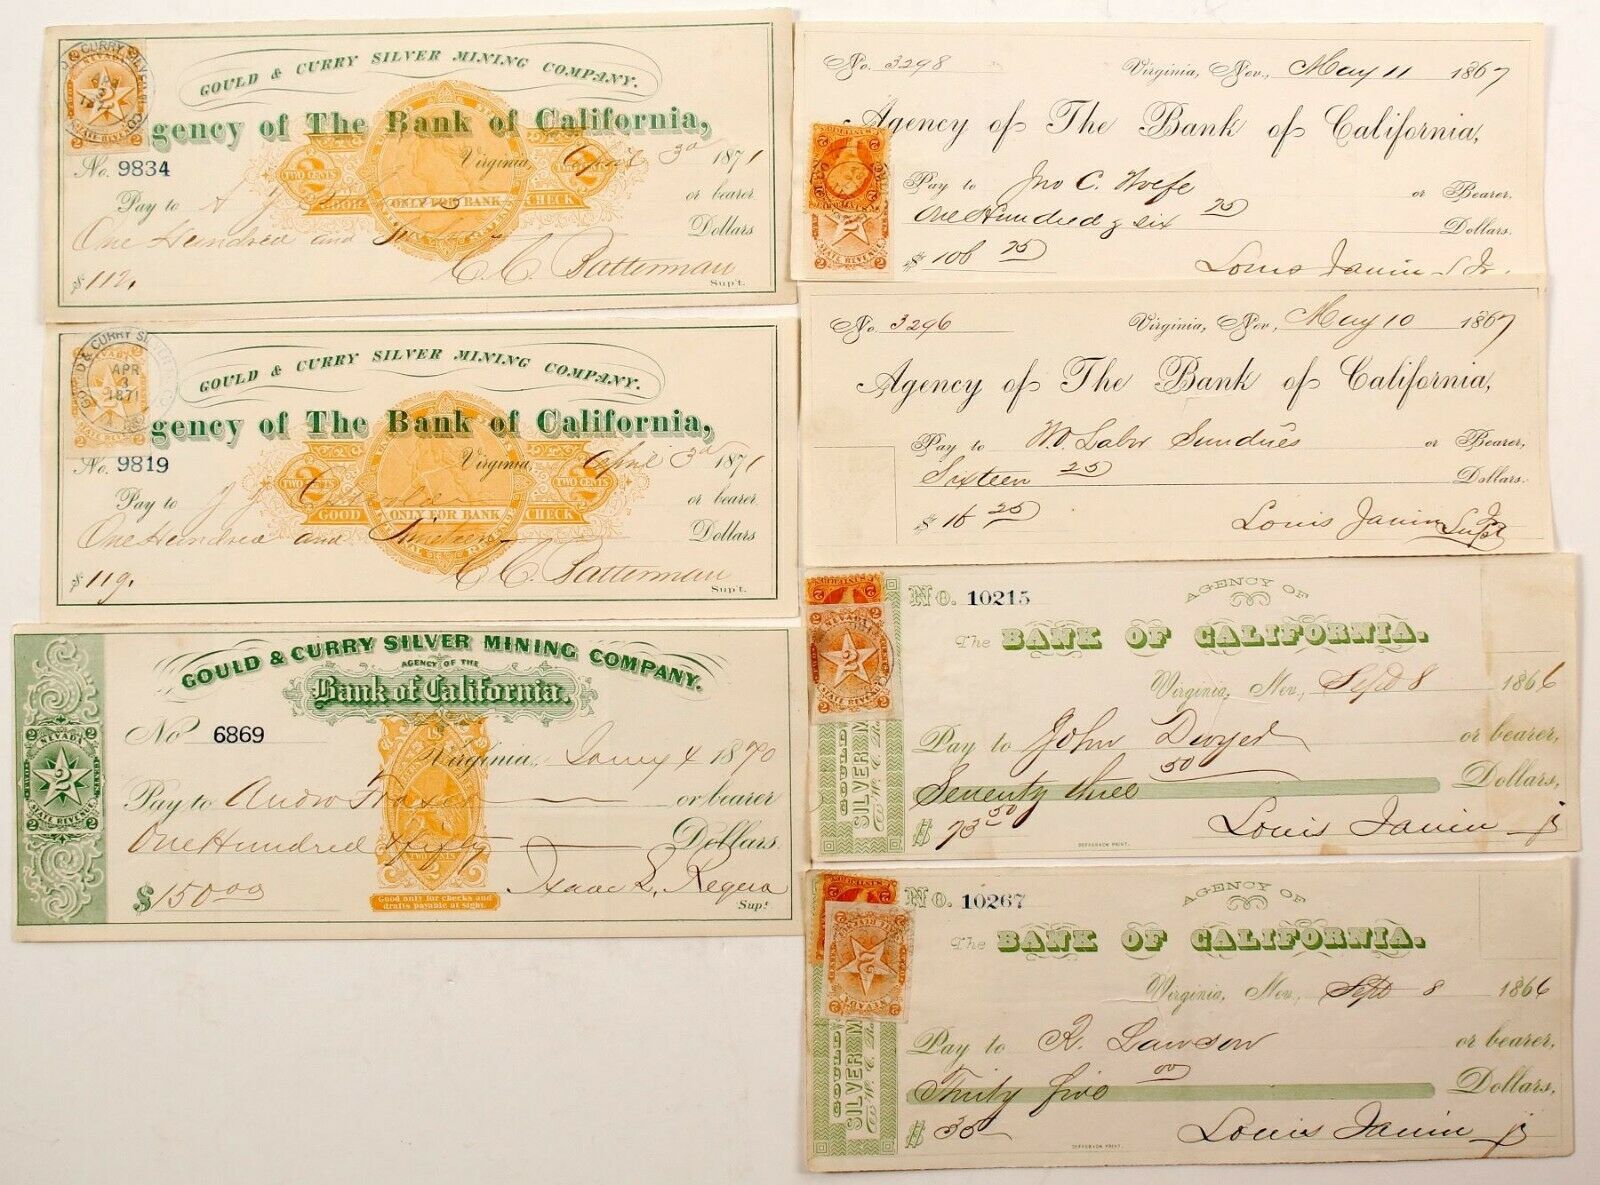 GOULD & CURRY SILVER MINING COMPANY.
Agency of The Bank of California,
No. 9834
Virginia, April 3d 1871
TWO CENTS
TWO CENTS
GOOD ONLY FOR BANK CHECK
Pay to
or bearer
One Hundred and
Dollars
$112.
C. C. Batterman
Sup't.
D & CURRY SILVER
APR
3
1871
GOULD & CURRY SILVER MINING COMPANY.
Agency of The Bank of California,
No. 9819
Virginia, April 3d 1871
TWO CENTS
TWO CENTS
GOOD ONLY FOR BANK CHECK
Pay to
or bearer
One Hundred and Nineteen
Dollars
$119.
C. C. Batterman
Sup't.
GOULD & CURRY SILVER MINING COMPANY.
AGENCY OF THE
Bank of California.
No 6869
Virginia, Jany 4 1870
2 NEVADA 2
2
STATE REVENUE
Pay to Andw Fraser or bearer
One Hundred & fifty Dollars
$150.00
TWO CENTS
2
Good only for checks and
drafts payable at sight.
Isaac L. Requa
Supt.
No. 3298
Virginia, Nev., May 11 1867
Agency of The Bank of California,
Pay to Jno C. Wolfe or Bearer,
One Hundred & six 25 Dollars.
$ 106 25
Louis Janin Jr.
STATE REVENUE
No. 3296
Virginia, Nev., May 10 1867
Agency of The Bank of California,
Pay to W. O. Labor Sundries or Bearer,
Sixteen 25 Dollars.
$ 16 25
Louis Janin Jr
Supt
No. 10215
AGENCY OF
The BANK OF CALIFORNIA.
Virginia, Nev., Sept 8 1866
NEVADA
2
STATE REVENUE
Pay to John Dwyer or bearer,
Seventy three 50 Dollars,
$ 73 50
Louis Janin Jr
GOULD
SILVER M
DEFFEBACH PRINT.
No. 10267
AGENCY OF
The BANK OF CALIFORNIA.
Virginia, Nev., Sept 8 1866
Pay to R. Lawson or bearer,
Thirty five 00 Dollars,
$ 35
Louis Janin Jr
GOULD
SILVER M
DEFFEBACH PRINT.